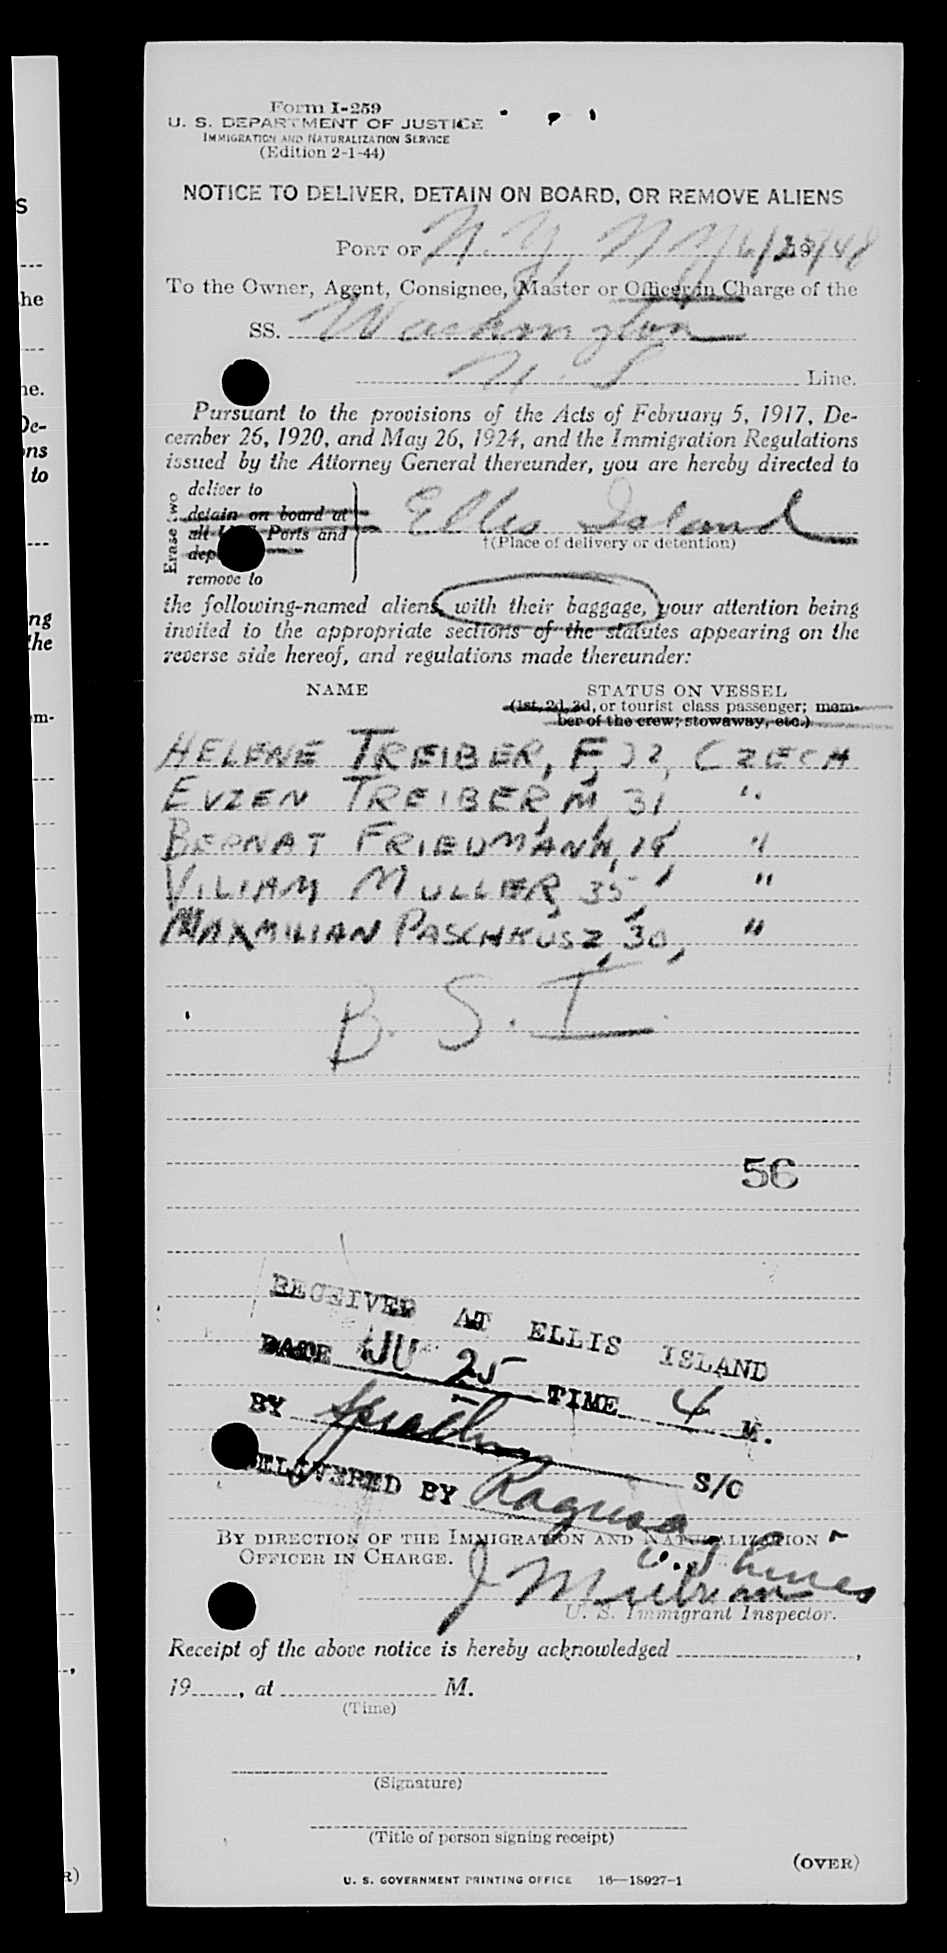 s
he
ne.
De-
ons
to
ng
the
em-
R)
Form I-259
U. S. DEPARTMENT OF JUSTICE
IMMIGRATION AND NATURALIZATION SERVICE
(Edition 2-1-44)
NOTICE TO DELIVER, DETAIN ON BOARD, OR REMOVE ALIENS
PORT OF N.Y, N Y 6/25/48
To the Owner, Agent, Consignee, Master or Officer in Charge of the
SS. Washington
U. S. Line.
Pursuant to the provisions of the Acts of February 5, 1917, De-
cember 26, 1920, and May 26, 1924, and the Immigration Regulations
issued by the Attorney General thereunder, you are hereby directed to
Erase two
deliver to
detain on board at
all Ports and
dep
remove to
Ellis Island
†(Place of delivery or detention)
the following-named aliens, with their baggage, your attention being
invited to the appropriate sections of the statutes appearing on the
reverse side hereof, and regulations made thereunder:
NAME STATUS ON VESSEL
(1st, 2d, 3d, or tourist class passenger; mem-
ber of the crew; stowaway, etc.)
HELENE TREIBER, F, 22, CZECH
EVZEN TREIBER, M, 31, "
BERNAT FRIEDMANN, 19, "
VILIAM MULLER, 35, "
MAXMILIAN PASCHKUSZ, 30, "
B. S. I.
56
RECEIVED AT ELLIS ISLAND
DATE JU 25 TIME 4 M.
BY S/O
DELIVERED BY Ragusa
BY DIRECTION OF THE IMMIGRATION AND NATURALIZATION
OFFICER IN CHARGE. U.S. Lines
U. S. Immigrant Inspector.
Receipt of the above notice is hereby acknowledged ,
19 , at M.
(Time)
(Signature)
(Title of person signing receipt)
(OVER)
U. S. GOVERNMENT PRINTING OFFICE 16—18927-1